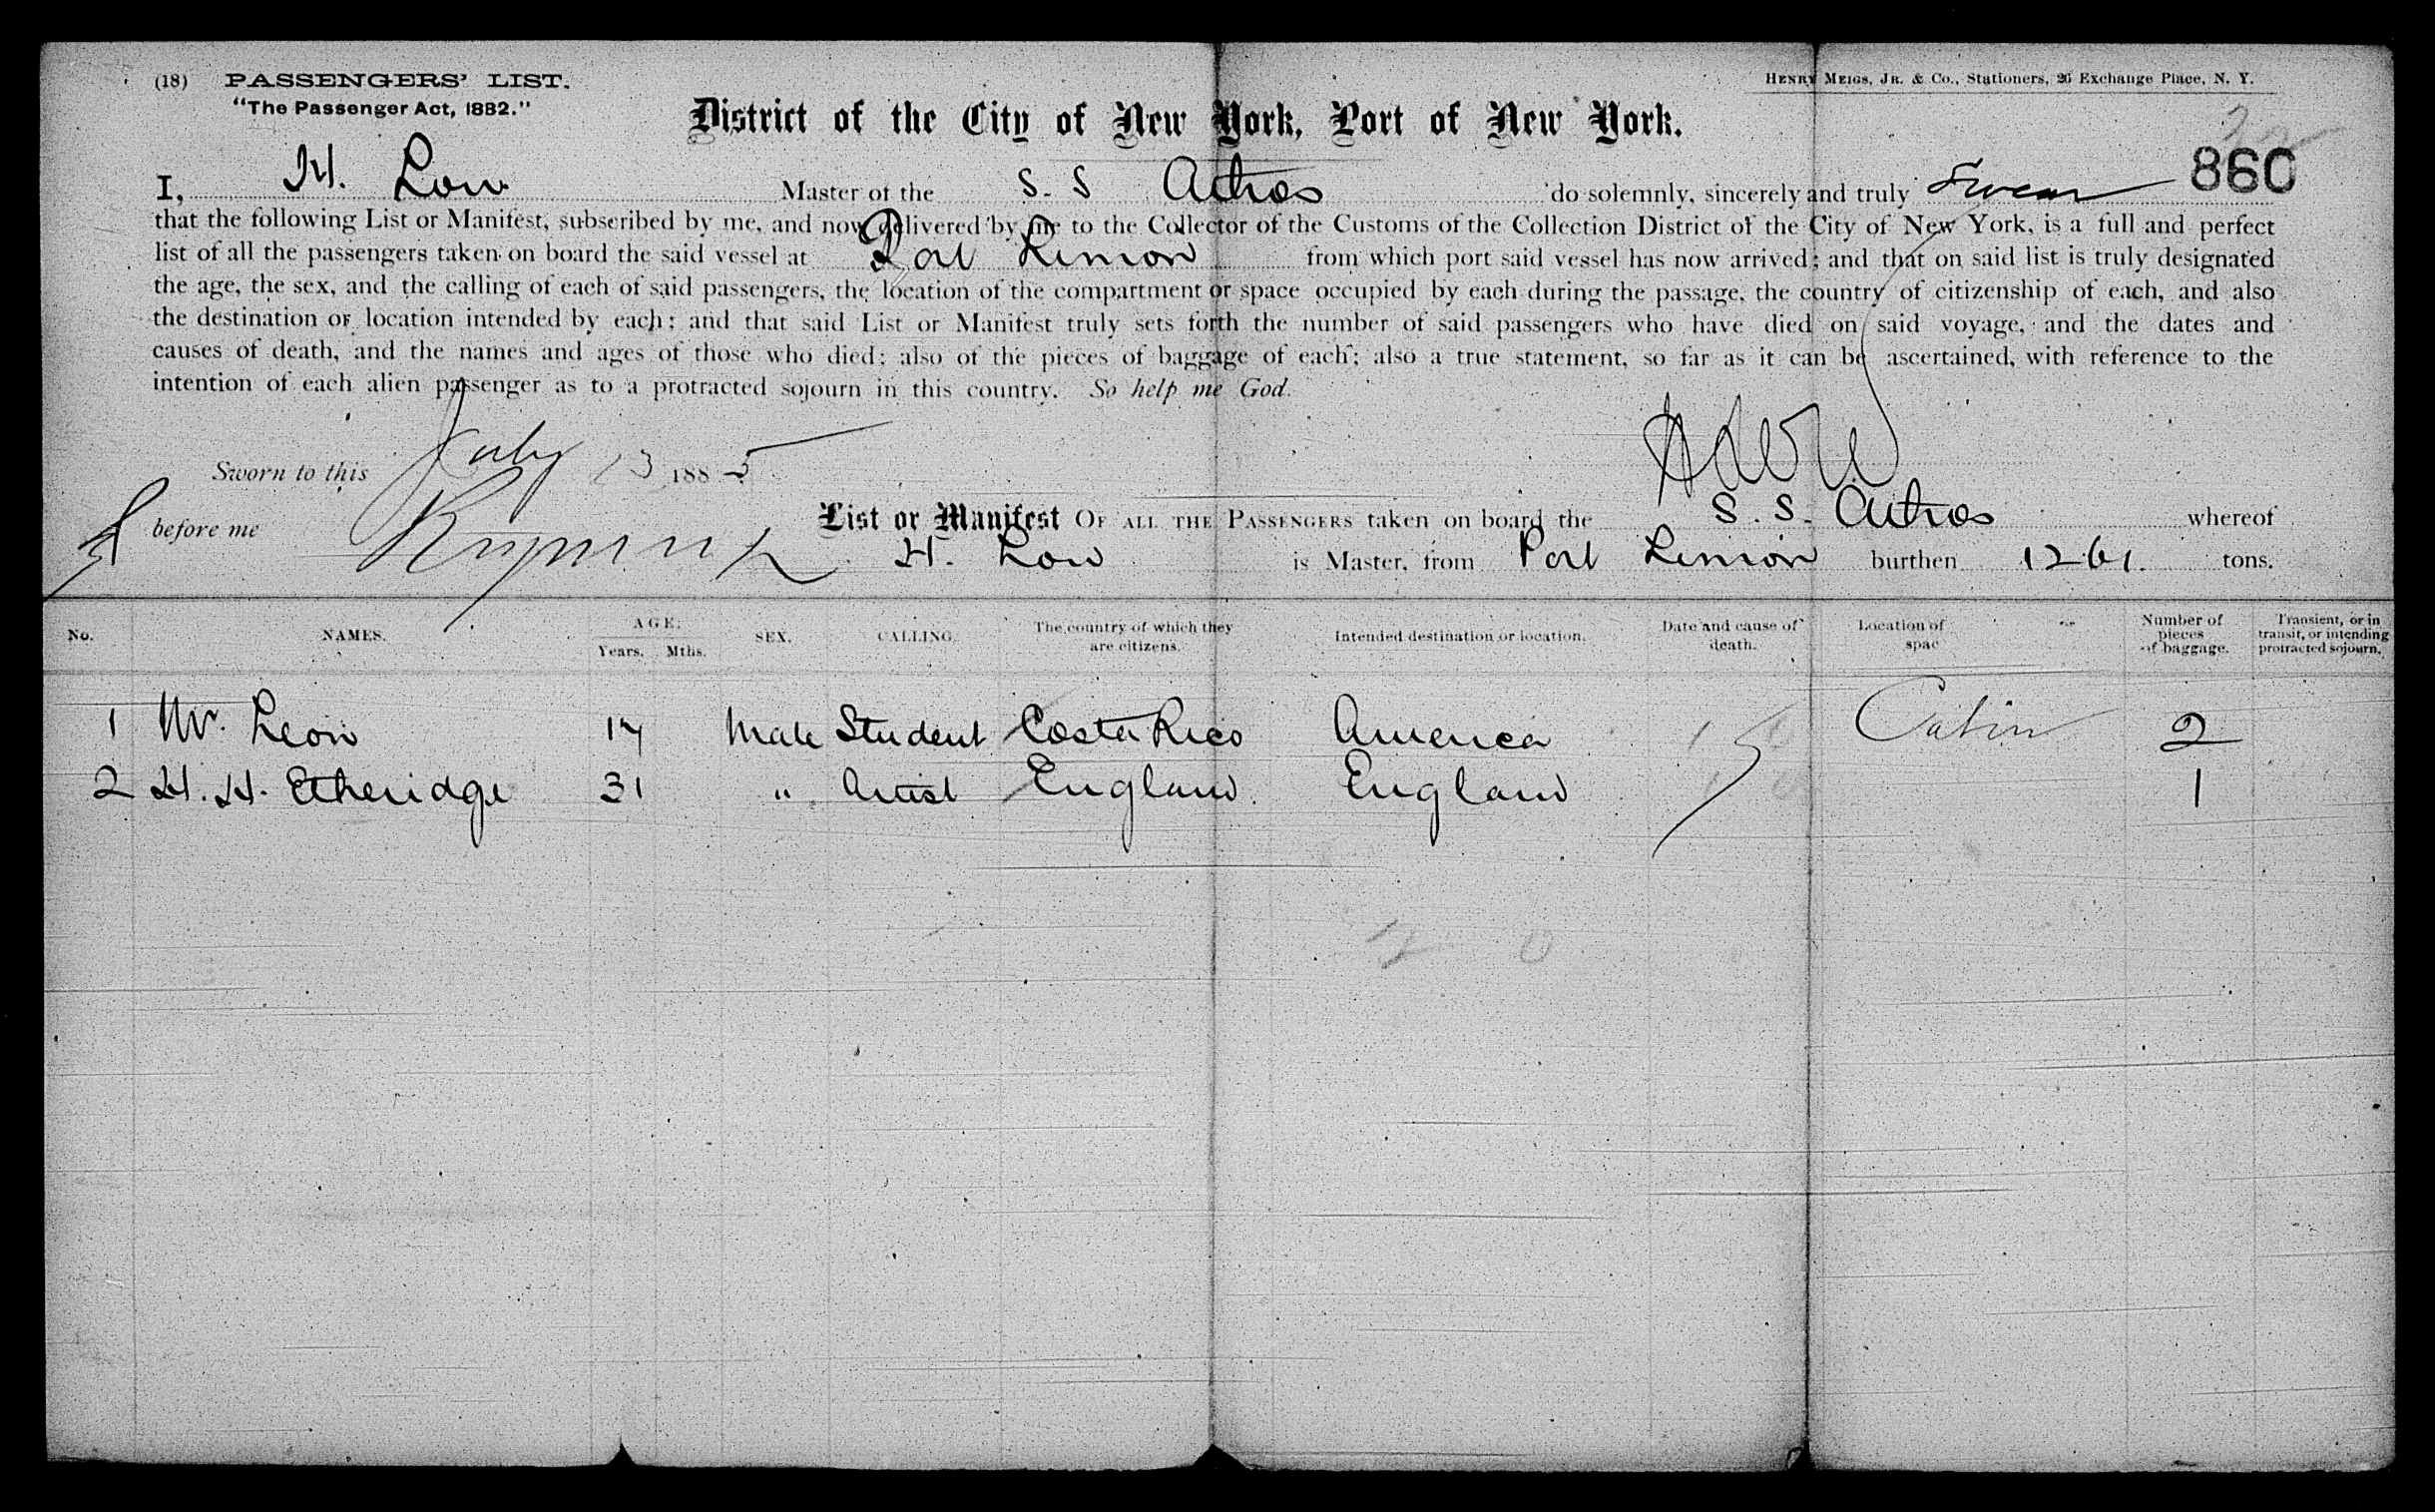 (18) PASSENGERS' LIST.
"The Passenger Act, 1882."
HENRY MEIGS, JR. & CO., Stationers, 26 Exchange Place, N. Y.
District of the City of New York, Port of New York.
860
I, H. Low Master of the S. S Athos do solemnly, sincerely and truly Swear
that the following List or Manifest, subscribed by me, and now delivered by me to the Collector of the Customs of the Collection District of the City of New York, is a full and perfect
list of all the passengers taken on board the said vessel at Port Limon from which port said vessel has now arrived; and that on said list is truly designated
the age, the sex, and the calling of each of said passengers, the location of the compartment or space occupied by each during the passage, the country of citizenship of each, and also
the destination or location intended by each; and that said List or Manifest truly sets forth the number of said passengers who have died on said voyage, and the dates and
causes of death, and the names and ages of those who died; also of the pieces of baggage of each; also a true statement, so far as it can be ascertained, with reference to the
intention of each alien passenger as to a protracted sojourn in this country. So help me God.
Sworn to this July 13 1885
H Low
before me
List or Manifest OF ALL THE PASSENGERS taken on board the S. S. Athos whereof
H. Low is Master, from Port Limon burthen 1261. tons.
No. NAMES. AGE. Years. Mths. SEX. CALLING. The country of which they are citizens. Intended destination or location. Date and cause of death. Location of spac Number of pieces of baggage. Transient, or in transit, or intending protracted sojourn.
1 Mr. Leon 17 Male Student Costa Rico America Cabin 2
2 H. H. Etheridge 31 " Artist England. England 1